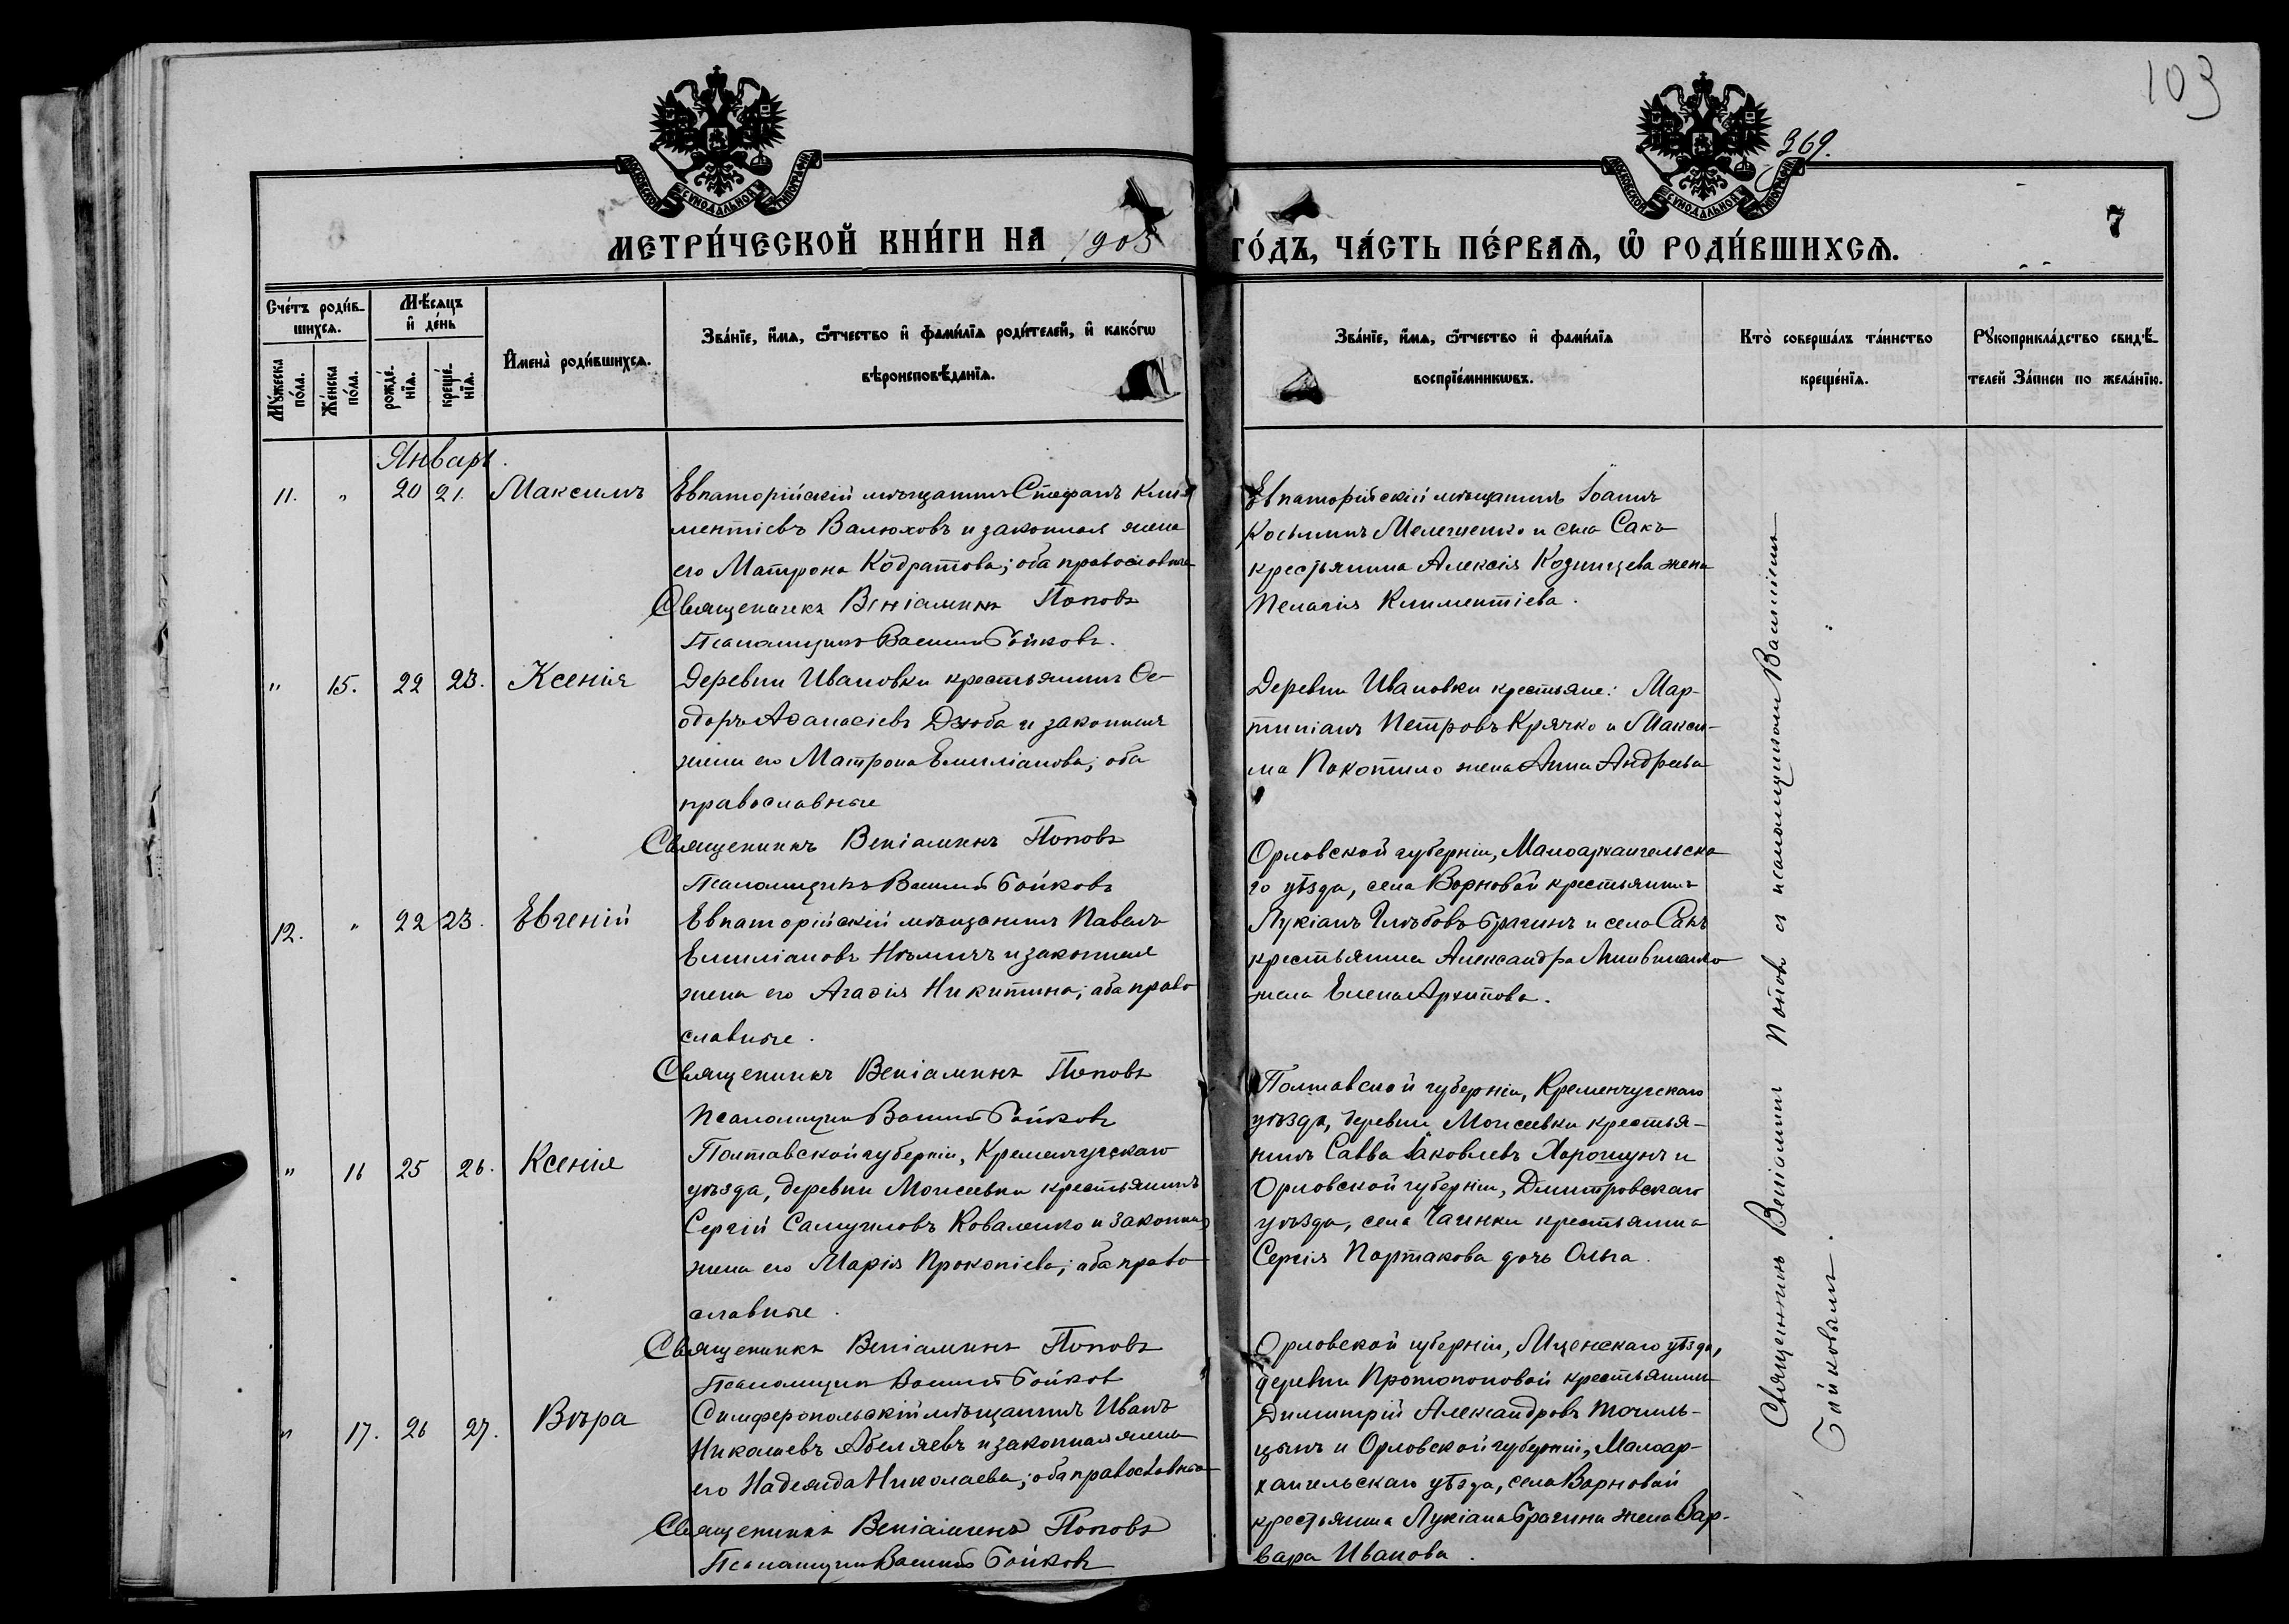 103
369.
МОСКОВСКОЙ СѴНОДАЛЬНОЙ ТИПОГРАФІИ
МОСКОВСКОЙ СѴНОДАЛЬНОЙ ТИПОГРАФІИ
7
МЕТРИ́ЧЕСКОЙ КНИ́ГИ НА 1905 ГО́ДЪ, ЧА́СТЬ ПЕ́РВАѦ, Ѽ РОДИ́ВШИХСѦ.
Сче́тъ роди́в-
шихсѧ.
Му́жеска по́ла.
Же́нска по́ла.
Мѣ́сѧцъ
и҆ де́нь
рожде́нїѧ.
креще́нїѧ.
И҆мена̀ роди́вшихсѧ.
Зва́нїе, и҆́мѧ, ѻ҆́тчество и҆ фами́лїѧ роди́телей, и҆ како́гѡ
вѣроисповѣ́данїѧ.
Зва́нїе, и҆́мѧ, ѻ҆́тчество и҆ фами́лїѧ
воспрїе́мникѡвъ.
Кто̀ соверша́лъ та́инство
креще́нїѧ.
Рꙋкоприкла́дство свидѣ́-
телей За́писи по жела́нїю.
Январь.
11. " 20 21. Максимъ
Евпаторійскій мѣщанинъ Стефанъ Кли-
ментіевъ Валюховъ и законная жена
его Матрона Кодратова; оба православные
Священникъ Веніаминъ Поповъ
Псаломщикъ Василій Бойковъ.
Евпаторійскій мѣщанинъ Іоаннъ
Косьминъ Мелешенко и села Сакъ
крестьянина Алексія Козинцева жена
Пелагія Климентіева.
" 15. 22 23. Ксенія
Деревни Ивановки крестьянинъ Ѳе-
одоръ Аѳанасіевъ Дзюба и законная
жена его Матрона Емиліанова; оба
православные
Священникъ Веніаминъ Поповъ
Псаломщикъ Василій Бойковъ
Деревни Ивановки крестьяне: Мар-
тиніанъ Петровъ Крячко и Макси-
ма Покотило жена Анна Андреева
12. " 22 23. Евгеній
Евпаторійскій мѣщанинъ Павелъ
Емиліановъ Нѣмичъ и законная
жена его Агаѳія Никитина; оба право
славные.
Священникъ Веніаминъ Поповъ
Псаломщикъ Василій Бойковъ
Орловской губерніи, Малоархангельска-
го уѣзда, села Ворновой крестьянинъ
Лукіанъ Глѣбовъ Брагинъ и села Сакъ
крестьянина Александра
жена Елена Архипова.
" 16 25 26. Ксенія
Полтавской губерніи, Кременчугскаго
уѣзда, деревни Моисеевки крестьянинъ
Сергій Самуиловъ Коваленко и законная
жена его Марія Прокопіева; оба право
славные.
Священникъ Веніаминъ Поповъ
Псаломщикъ Василій Бойковъ
Полтавской губерніи, Кременчугскаго
уѣзда, деревни Моисеевки крестья-
нинъ Савва Іаковлевъ Хорошунъ и
Орловской губерніи, Дмитровскаго
уѣзда, села Чаинки крестьянина
Сергія Портакова дочь Ольга.
" 17. 26 27. Вѣра
Симферопольскій мѣщанинъ Иванъ
Николаевъ Абеляевъ и законная жена
его Надежда Николаева; оба православные
Священникъ Веніаминъ Поповъ
Псаломщикъ Василій Бойковъ
Орловской губерніи, Мценскаго уѣзда,
деревни Протопоповой крестьянинъ
Димитрій Александровъ Точиль-
цынъ и Орловской губерніи, Малоар-
хангельскаго уѣзда, села Ворновой
крестьянина Лукіана Брагина жена Вар-
вара Иванова.
Священникъ Веніаминъ Поповъ и псаломщикомъ Василіемъ
Бойковымъ.